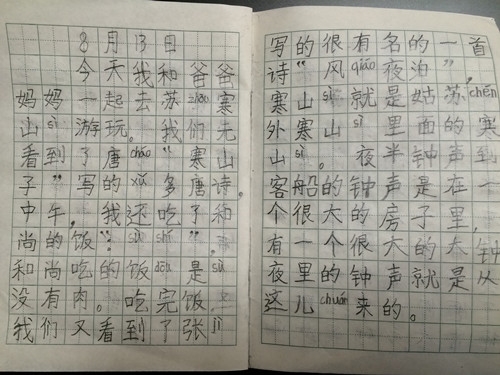 8月13日
今天我和爸爸
妈妈一起去苏zhōu寒
山sì游玩。我们先
看到了唐cháo“寒山
子”写的xǔ多唐诗。
中午，我还吃了和
尚的饭“sù shí”。
和尚吃的饭dōu是sù
没有肉。吃完饭
我们又看到了张jì
写的很有名的一首
诗“风qiáo夜泊”，chén
寒山sì就是姑苏
外寒山sì里面的寒
山sì。夜半钟声到
客船的钟声是在一
个很大的房子里，
有一个很大的大钟
夜里的钟声就是从
这儿chuán来的。